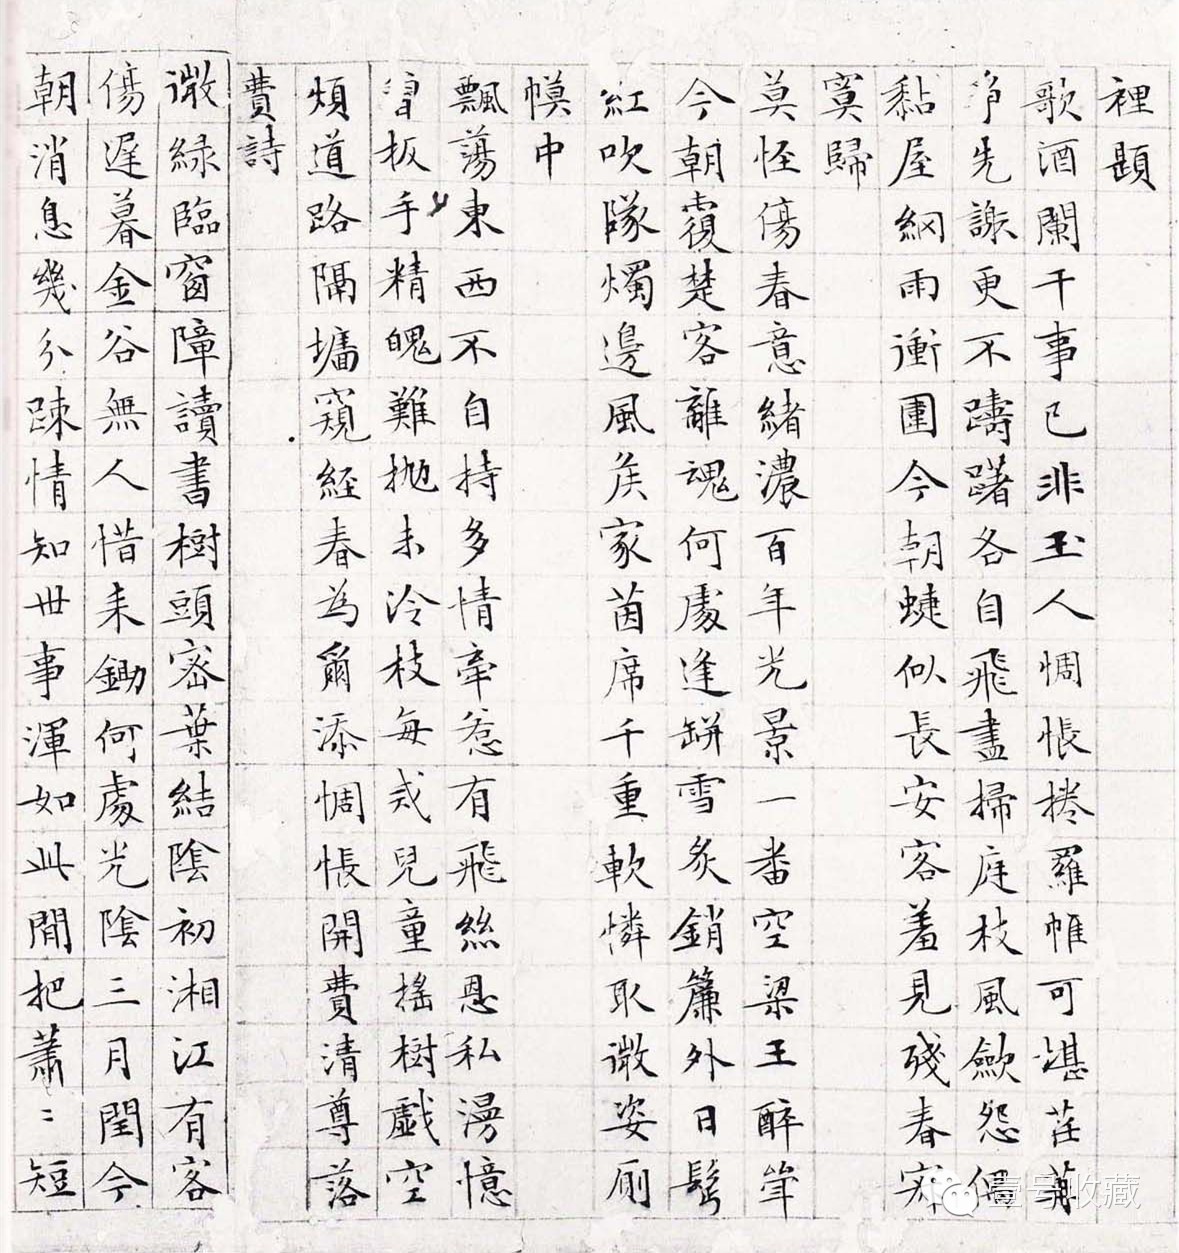 裡題
歌酒闌干事已非玉人惆悵捲羅帷可堪荏苒
爭先謝更不躊躇各自飛盡掃庭枝風歛怨偶
黏屋網雨衝圍今朝蜨似長安客羞見殘春寂
寞歸
莫怪傷春意緒濃百年光景一番空梁王醉聳
今朝覆楚客離魂何處逢缾雪炙銷簾外日髩
紅吹隊燭邊風矦家茵席千重軟憐取微姿厠
幙中
飄蕩東西不自持多情牽惹有飛絲恩私漫憶
曾扳手精魄難拋未冷枝每戒兒童搖樹戲空
煩道路隔墉窺經春為爾添惆悵開費清尊落
費詩
微綠臨窗障讀書樹頭密葉結陰初湘江有客
傷遲暮金谷無人惜耒鋤何處光陰三月閏今
朝消息幾分踈情知世事渾如此閒把蕭〻短
壹号收藏